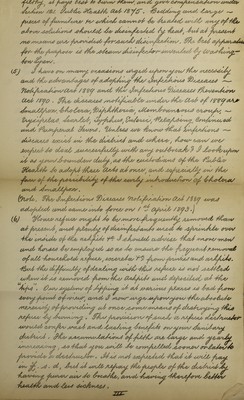 filthy, it pays best to burn them, and give compensation under
Section 121 Public Health Act 1875. Bedding and larger
pieces of furniture &c which cannot be treated with any of the
above solutions should be disinfected by heat, but at present
no means are provided for such disinfection. The best apparatus
for the purpose is the steam disinfector invented by Washington
Lyon.
(5) I have on many occasions urged upon you the necessity
and the advantages of adopting the Infectious Diseases
Notification Act 1889 and the Infectious Diseases Prevention
Act 1890. The diseases notifiable under the Act of 1889 are
Smallpox, Cholera, Diphtheria, Membranous croup,
Erysipelas, Scarlet, Typhus, Enteric, Relapsing, Continued
and Puerperal Fevers. Unless we know that infectious
diseases exist in the district and where, how can we
expect to deal successfully with any outbreak? I look upon
it as your bounden duty, as the custodians of the Public
Health to adopt these Acts at once, and especially in the
face of the possibility of the early introduction of Cholera
and Smallpox.
(Note. The Infectious Diseases Notification Act 1889 was
adopted and came into force on 1st April 1893.)
(6) House refuse ought to be more frequently removed than
at present, and plenty of disinfectants used to sprinkle over
the inside of the ashpits &c. I should advise that more men
and horses be employed so as to ensure the frequent removal
of all household refuse, excreta &c from privies and ashpits.
But the difficulty of dealing with the refuse is not settled
when it is removed from the ashpits and deposited at the
"tips". Our system of tipping it at various places is bad from
every point of view, and I now urge upon you the absolute
necessity of providing at once some means of destroying this
refuse by burning. The provision of such a refuse destructor
would confer great and lasting benefit on your Sanitary
district. The accumulations of filth are large and yearly
increasing, so that you will be compelled sooner or later to
provide a destructor. It is not expected that it will pay
in £. s. d, but it will repay the people of the district by
having purer air to breathe, and having therefore better
health and less sickness.